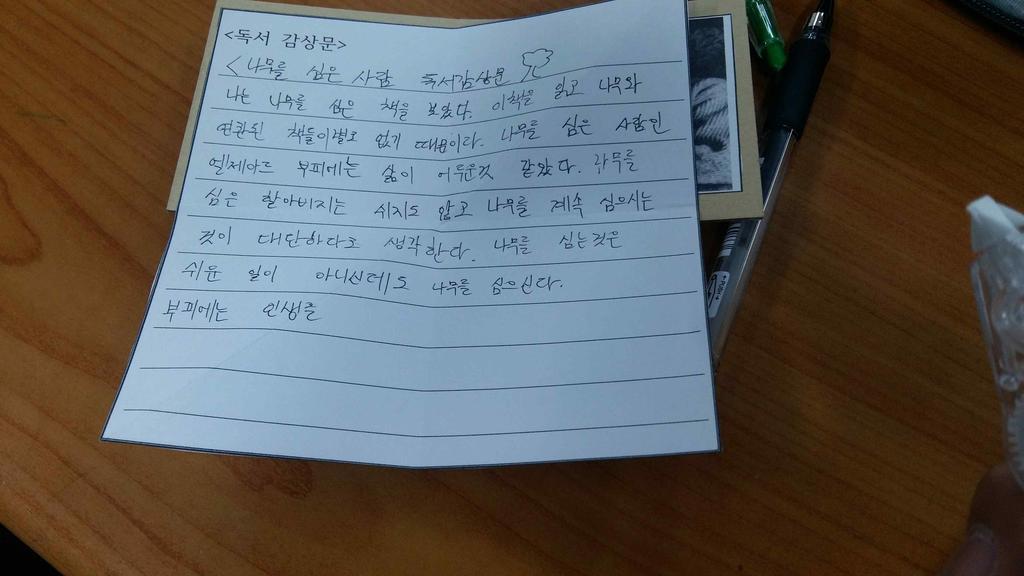 <독서 감상문>
<나무를 심은 사람 독서감상문
나는 나무를 심은 책을 보았다. 이책을 읽고 나무와
연관된 책들이별로 없기 때문이다. 나무를 심은 사람인
엘제아드 부피에는 삶이 어두운것 같았다. 나무를
심은 할아버지는 쉬지도 않고 나무를 계속 심으시는
것이 대단하다고 생각한다. 나무를 심는것은
쉬운 일이 아니신데도 나무를 심으신다.
부피에는 인생을